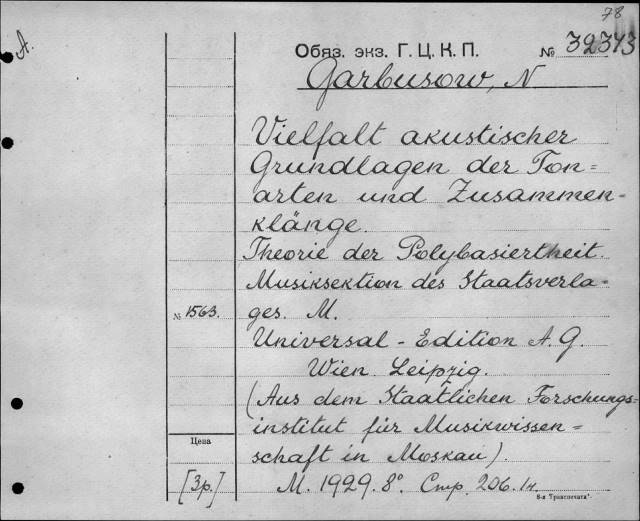 78
A.
Обяз. экз. Г. Ц. К. П. № 32343
Garbusow, N
Vielfalt akustischer
Grundlagen der Ton=
arten und Zusammen-
klänge.
Theorie der Polybasiertheit.
Musiksektion des Staatsverla-
№ 1563. ges. M.
Universal-Edition A. G.
Wien Leipzig.
(Aus dem Staatlichen Forschungs=
institut für Musikwissen=
schaft in Moskau).
Цена
[3р.] М. 1929. 8°. Стр. 206. 1н.
8-я "Транспечать".